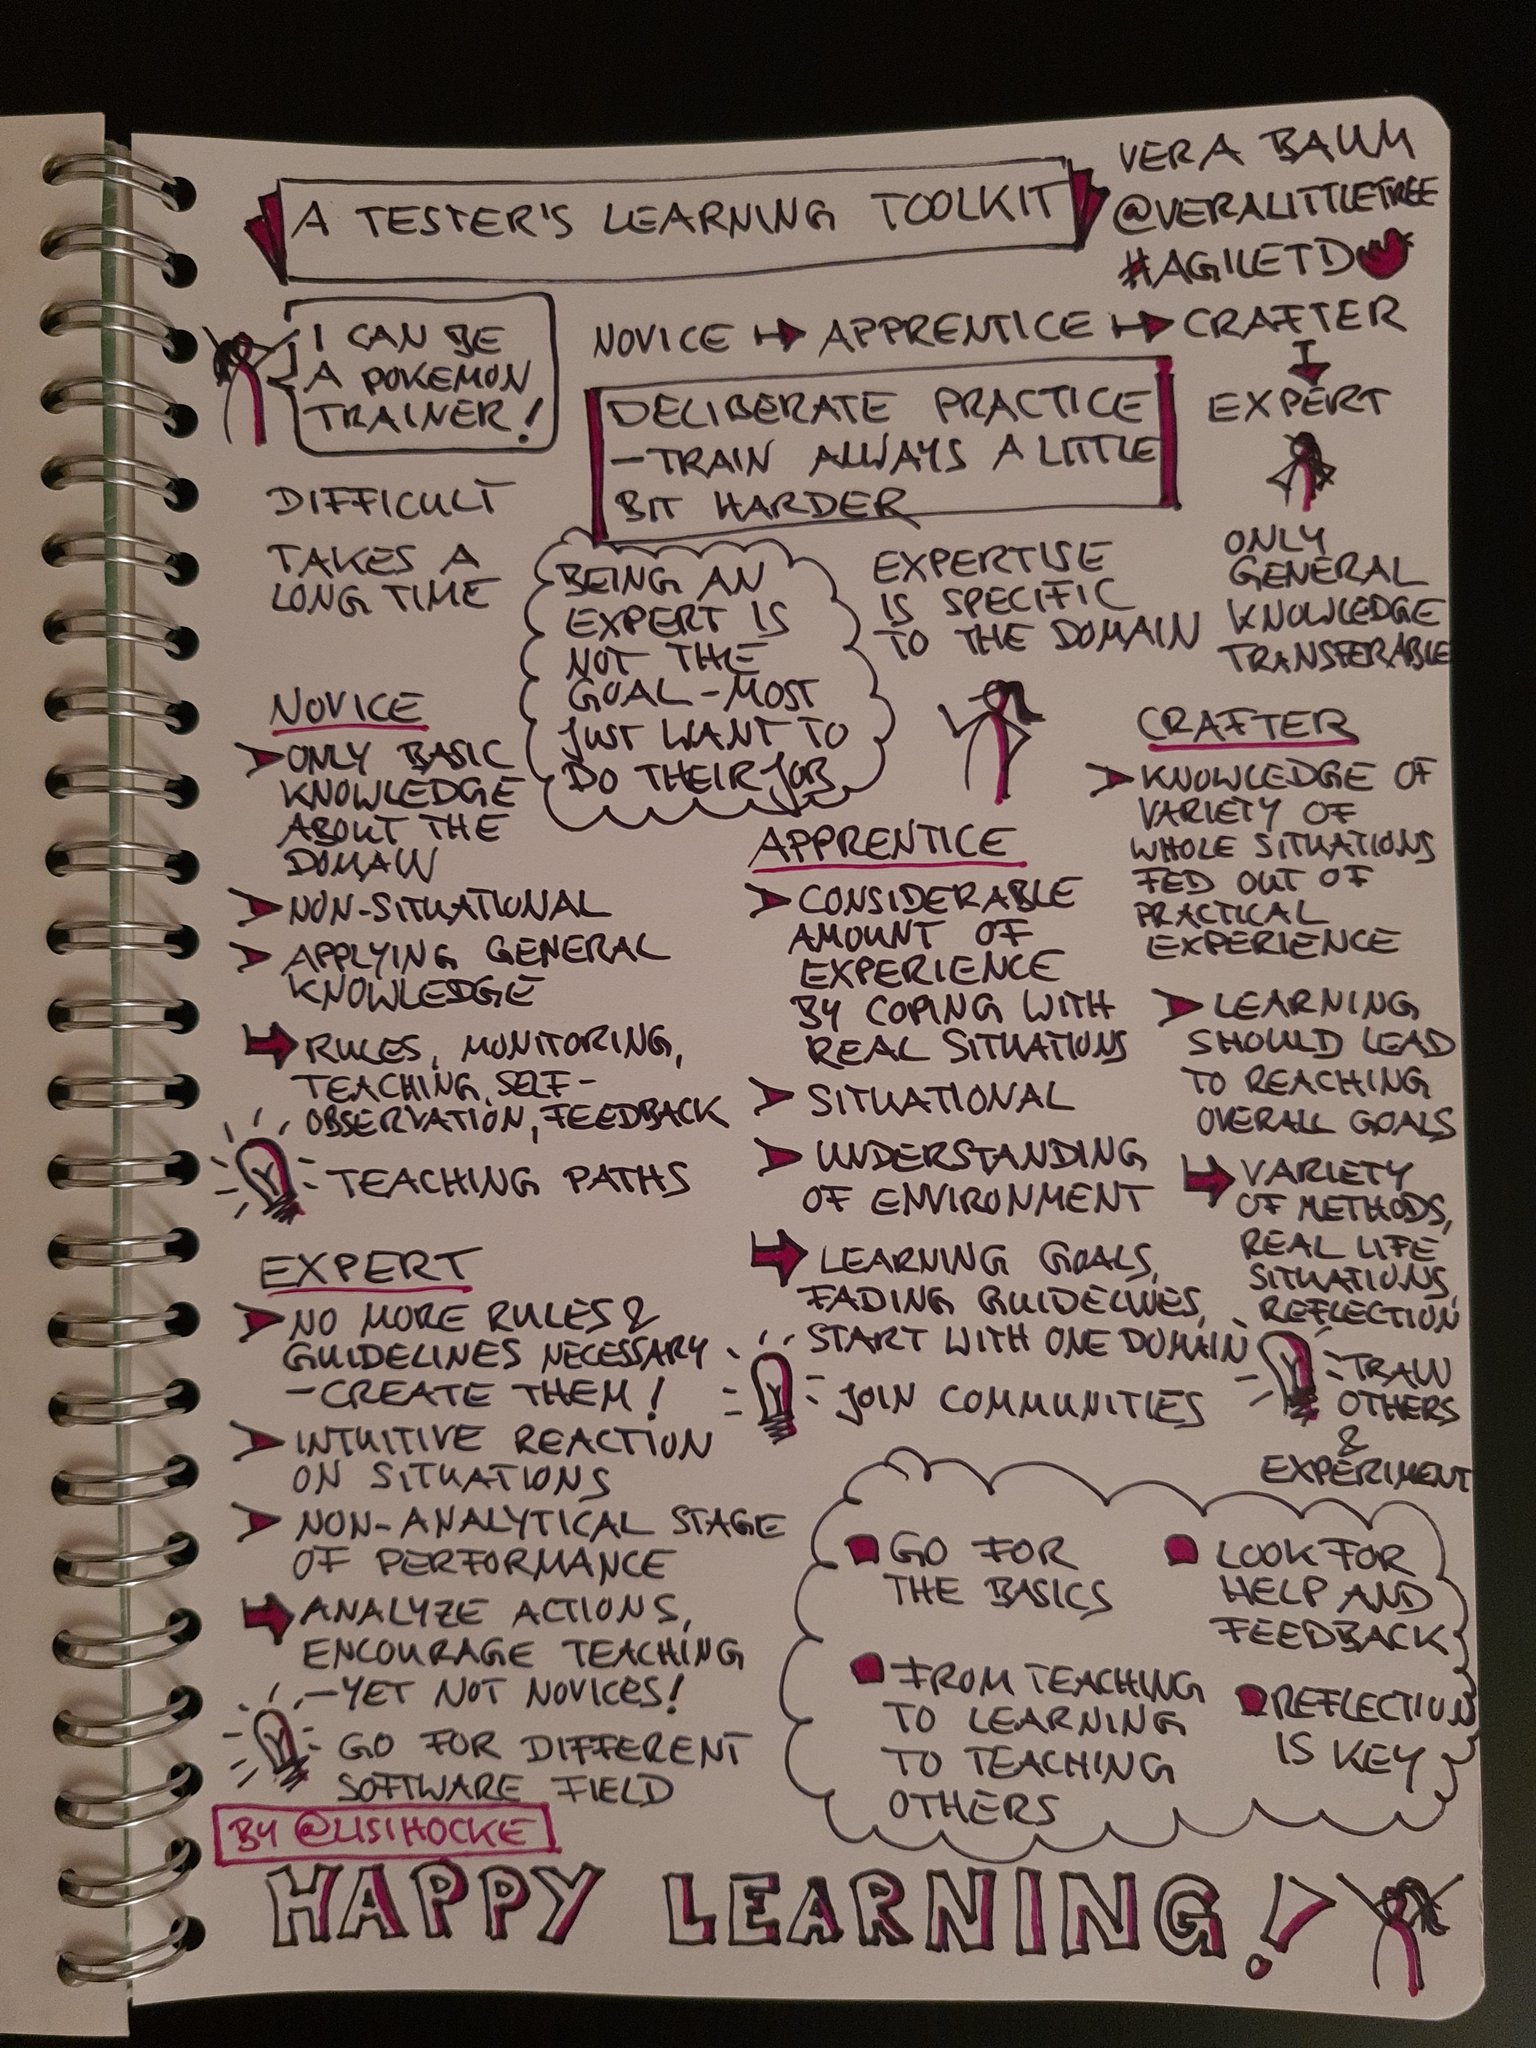 A TESTER'S LEARNING TOOLKIT
VERA BAUM
@VERALITTLETREE
#AGILETD
I CAN BE
A POKEMON
TRAINER!
NOVICE → APPRENTICE → CRAFTER
EXPERT
DELIBERATE PRACTICE
-TRAIN ALWAYS A LITTLE
BIT HARDER
DIFFICULT
TAKES A
LONG TIME
BEING AN
EXPERT IS
NOT THE
GOAL - MOST
JUST WANT TO
DO THEIR JOB
EXPERTISE
IS SPECIFIC
TO THE DOMAIN
ONLY
GENERAL
KNOWLEDGE
TRANSFERABLE
NOVICE
ONLY BASIC
KNOWLEDGE
ABOUT THE
DOMAIN
NON-SITUATIONAL
APPLYING GENERAL
KNOWLEDGE
RULES, MONITORING,
TEACHING, SELF-
OBSERVATION, FEEDBACK
TEACHING PATHS
APPRENTICE
CONSIDERABLE
AMOUNT OF
EXPERIENCE
BY COPING WITH
REAL SITUATIONS
SITUATIONAL
UNDERSTANDING
OF ENVIRONMENT
LEARNING GOALS,
FADING GUIDELINES,
START WITH ONE DOMAIN
JOIN COMMUNITIES
CRAFTER
KNOWLEDGE OF
VARIETY OF
WHOLE SITUATIONS
FED OUT OF
PRACTICAL
EXPERIENCE
LEARNING
SHOULD LEAD
TO REACHING
OVERALL GOALS
VARIETY
OF METHODS,
REAL LIFE
SITUATIONS,
REFLECTION
TRAIN
OTHERS
&
EXPERIMENT
EXPERT
NO MORE RULES &
GUIDELINES NECESSARY
-CREATE THEM!
INTUITIVE REACTION
ON SITUATIONS
NON-ANALYTICAL STAGE
OF PERFORMANCE
ANALYZE ACTIONS,
ENCOURAGE TEACHING
-YET NOT NOVICES!
GO FOR DIFFERENT
SOFTWARE FIELD
GO FOR
THE BASICS
LOOK FOR
HELP AND
FEEDBACK
FROM TEACHING
TO LEARNING
TO TEACHING
OTHERS
REFLECTION
IS KEY
BY @LISIHOCKE
HAPPY LEARNING!